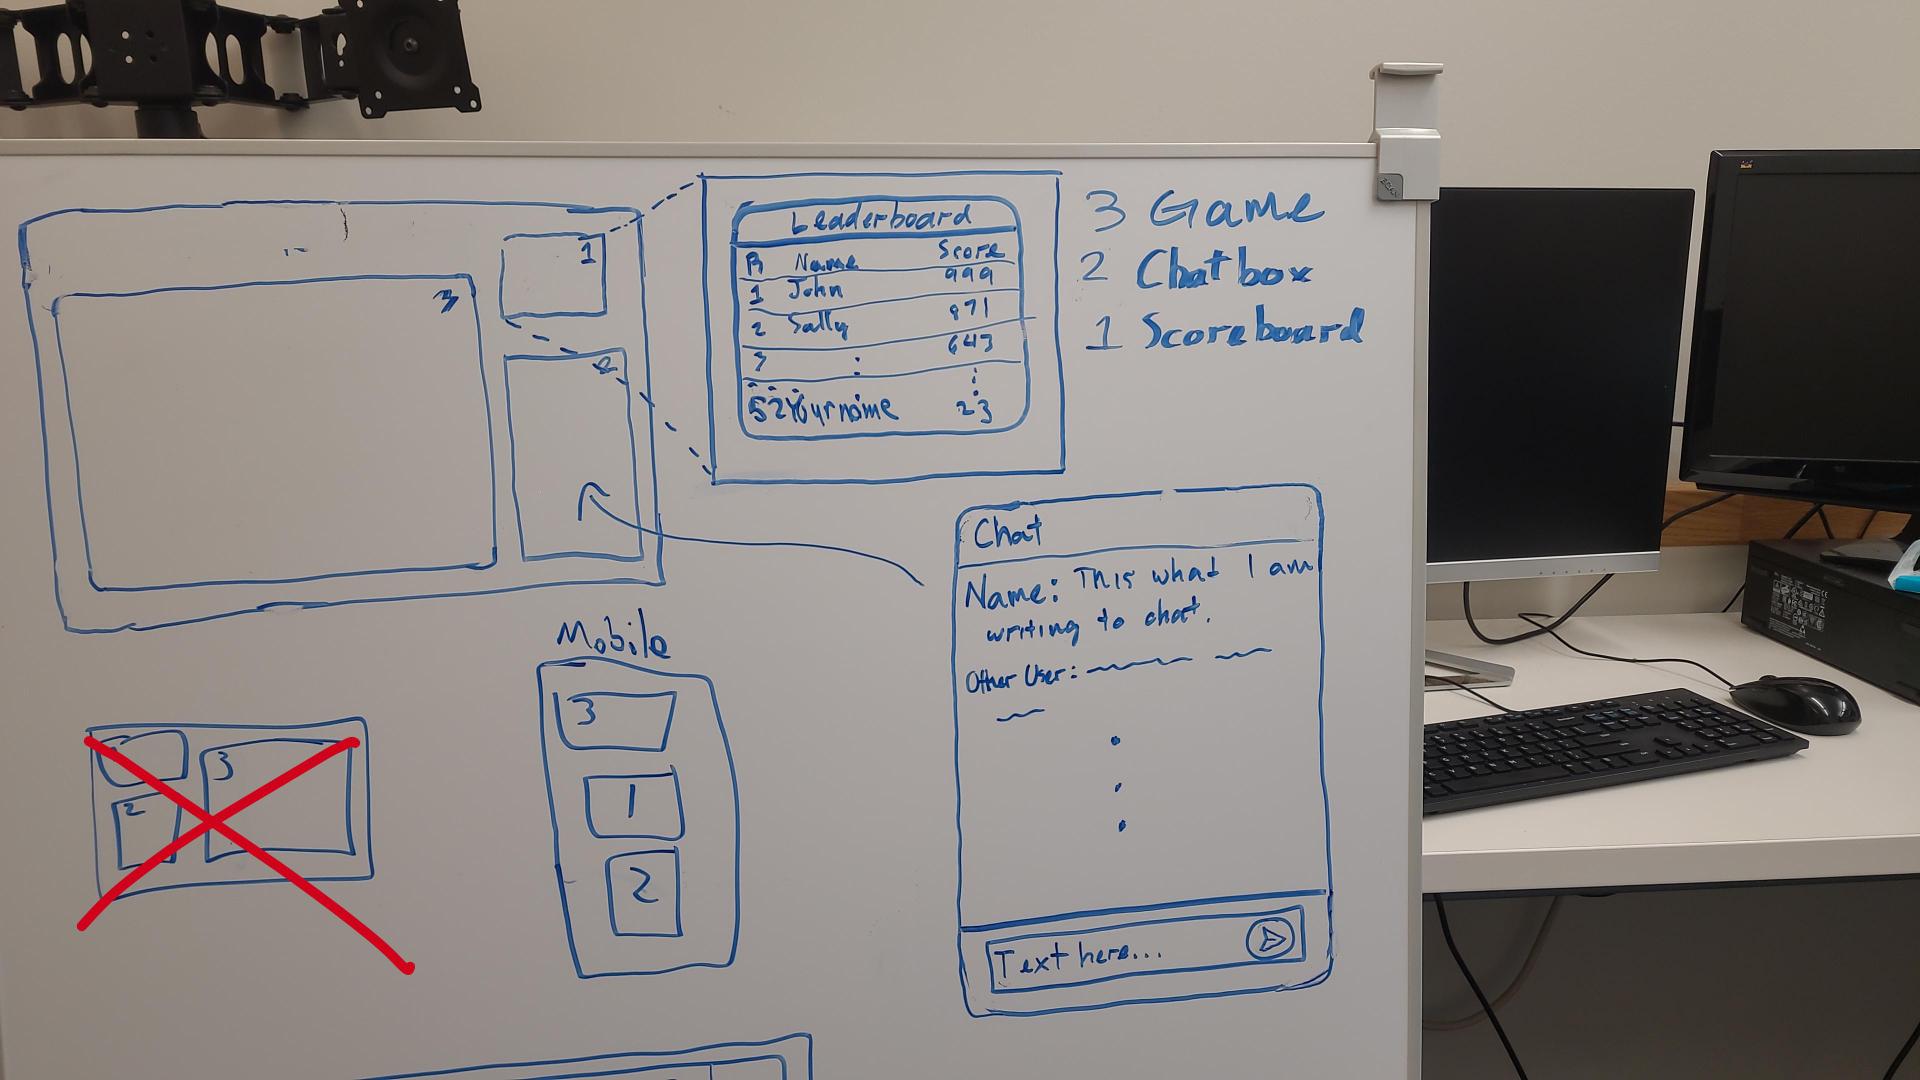 1
3
2
Leaderboard
R Name Score
1 John 999
2 Sally 971
3 : 643
52 Yourname 23
3 Game
2 Chatbox
1 Scoreboard
Chat
Name: This what I am
writing to chat.
Other User:
Text here...
Mobile
3
1
2
3
2